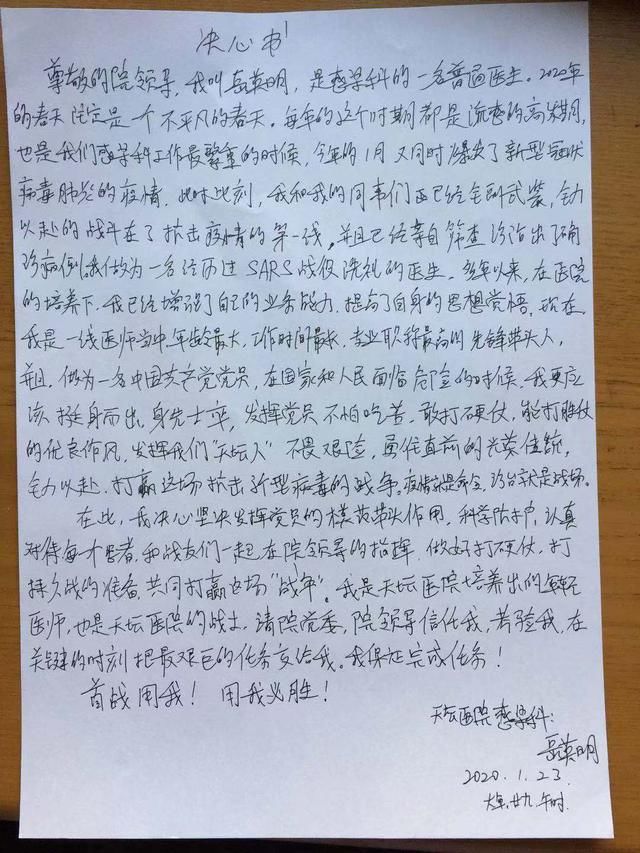 决心书
尊敬的院领导，我叫岳英明，是感染科的一名普通医生。2020年
的春天注定是一个不平凡的春天。每年的这个时期都是流感的高发期，
也是我们感染科工作最繁重的时候，今年的1月又同时爆发了新型冠状
病毒肺炎的疫情，此时此刻，我和我的同事们已经全副武装，全力
以赴的战斗在了抗击疫情的第一线，并且已经亲自筛查诊治出了确
诊病例。我做为一名经历过SARS战役洗礼的医生，多年以来，在医院
的培养下，我已经增强了自己的业务能力，提高了自身的思想觉悟，现在，
我是一线医师当中年龄最大，工作时间最长，专业职称最高的先锋带头人，
并且，做为一名中国共产党党员，在国家和人民面临危险的时候，我更应
该挺身而出，身先士卒，发挥党员不怕吃苦，敢打硬仗，能打胜仗
的优良作风，发挥我们“天坛人”不畏艰险，勇往直前的光荣传统，
全力以赴，打赢这场抗击新型病毒的战争。疫情就是命令，诊台就是战场。
在此，我决心坚决发挥党员的模范带头作用，科学防护，认真
对待每个患者，和战友们一起，在院领导的指挥，做好打硬仗，打
持久战的准备，共同打赢这场“战争”。我是天坛医院培养出的年轻
医师，也是天坛医院的战士，请院党委，院领导信任我，考验我，在
关键的时刻把最艰巨的任务交给我。我保证完成任务！
首战用我！用我必胜！
天坛医院感染科：
岳英明
2020.1.23.
大年廿九.午时.